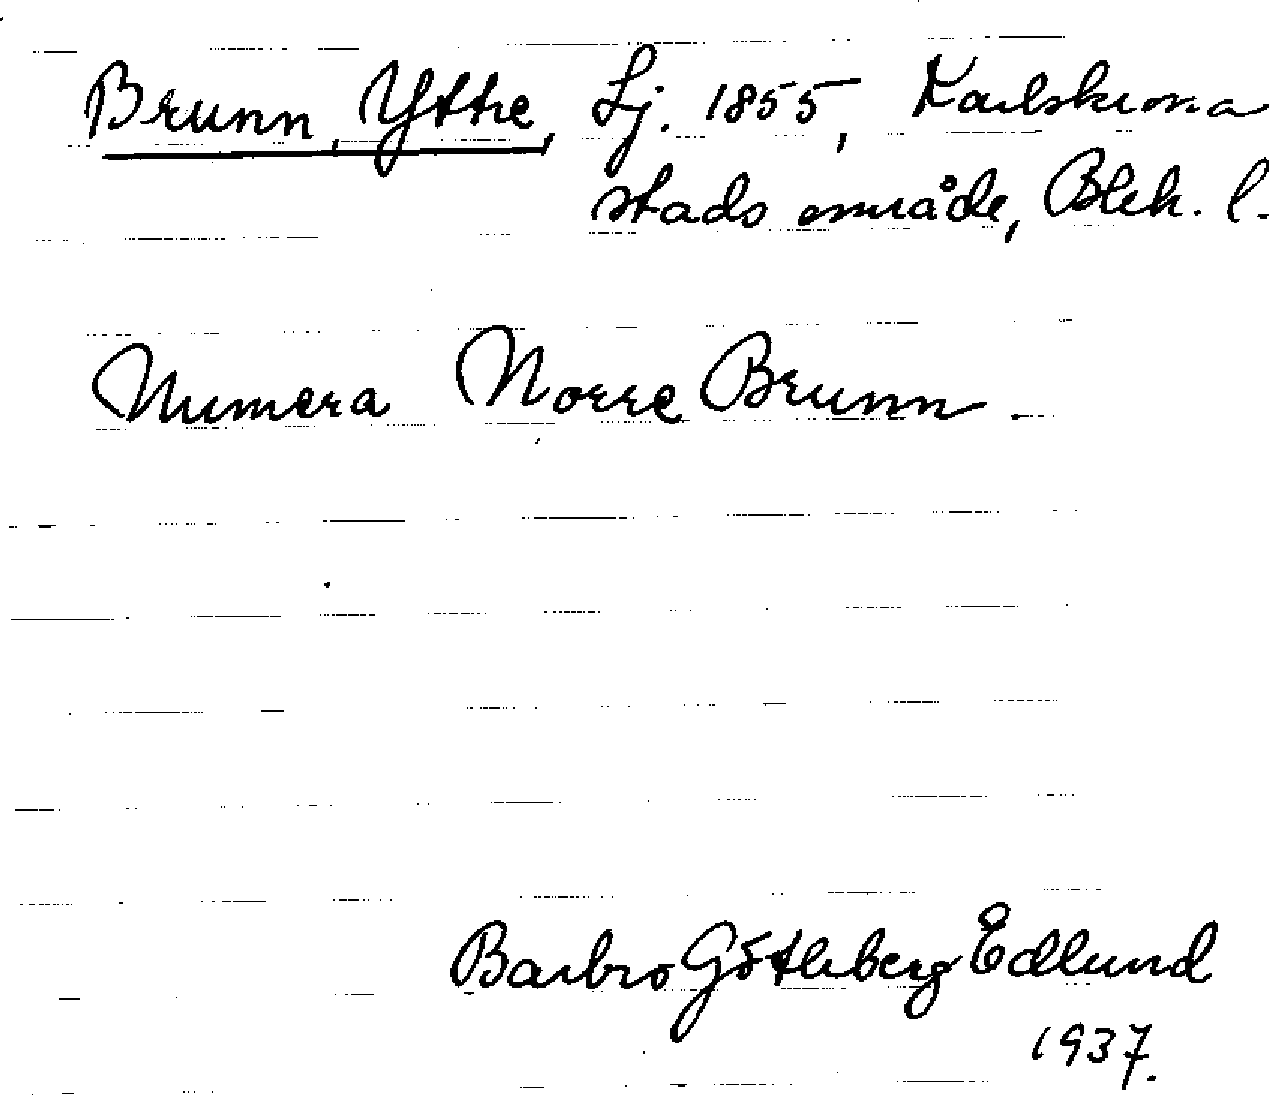 Brunn, Yttre, Lj. 1855, Karlskrona
stads område, Blek. l.
Numera Norre Brunn.
Barbro Götleberg Edlund
1937.